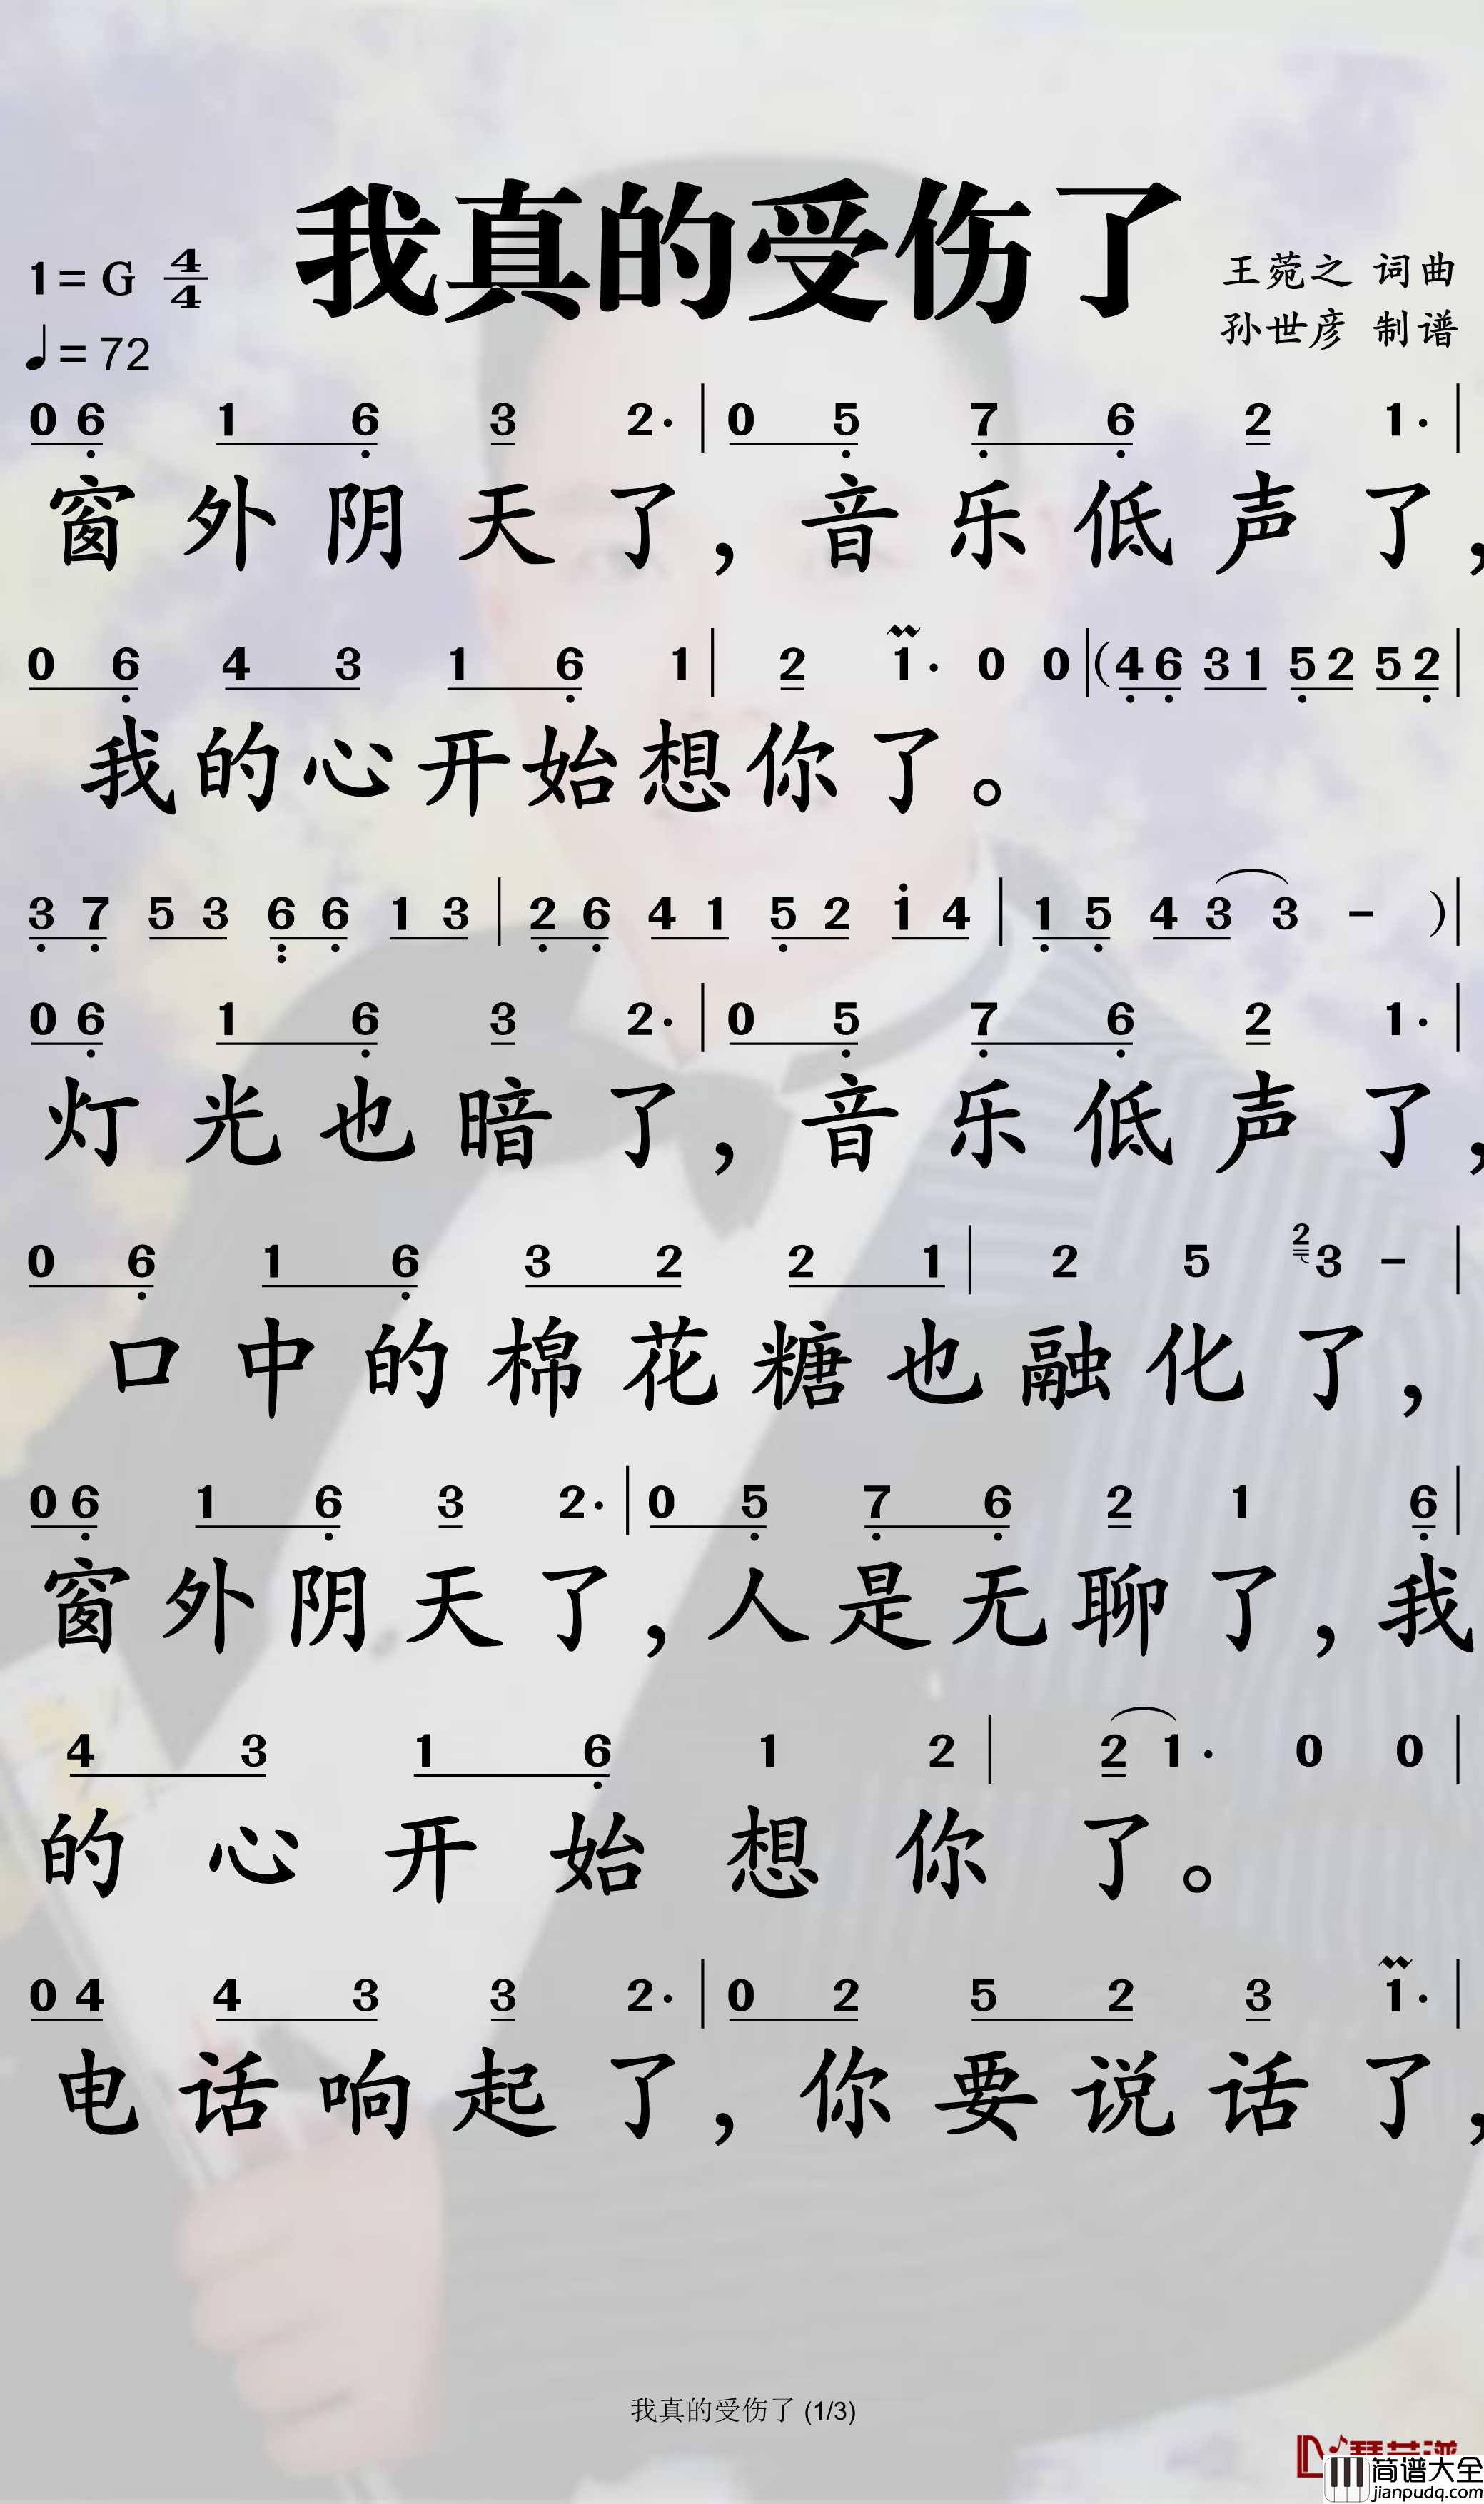 我真的受伤了
1=G 4/4
♩=72
王菀之 词曲
孙世彦 制谱
0 6 1 6 3 2· | 0 5 7 6 2 1· |
窗外阴天了，音乐低声了，
0 6 4 3 1 6 1 | 2 1· 0 0 | (4 6 3 1 5 2 5 2 |
我的心开始想你了。
3 7 5 3 6 6 1 3 | 2 6 4 1 5 2 1 4 | 1 5 4 3 3 - ) |
0 6 1 6 3 2· | 0 5 7 6 2 1· |
灯光也暗了，音乐低声了，
0 6 1 6 3 2 2 1 | 2 5 2 3 - |
口中的棉花糖也融化了，
0 6 1 6 3 2· | 0 5 7 6 2 1 6 |
窗外阴天了，人是无聊了，我
4 3 1 6 1 2 | 2 1· 0 0 |
的心开始想你了。
0 4 4 3 3 2· | 0 2 5 2 3 1· |
电话响起了，你要说话了，
我真的受伤了 (1/3)
简谱大全
jianpudq.com